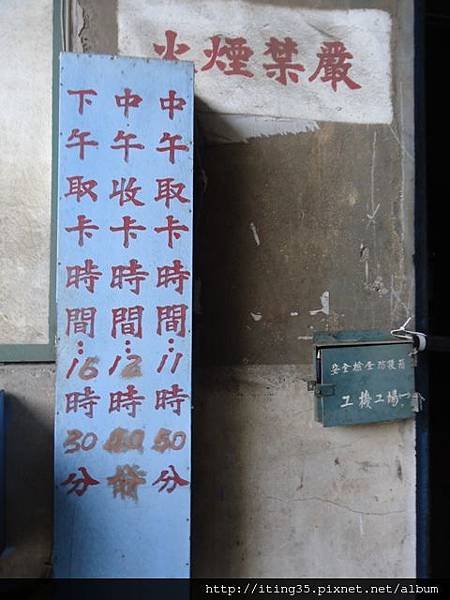 嚴禁煙火
中午取卡時間:11時50分
中午收卡時間:12時
下午取卡時間:16時30分
工機工場
http://iting35.pixnet.net/album